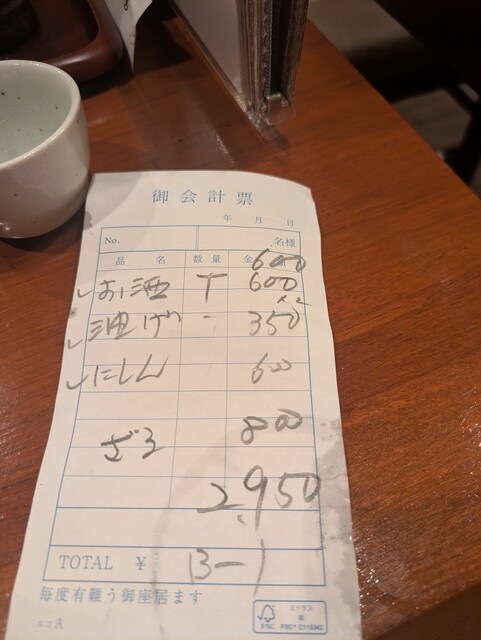 御会計票
年 月 日
No. 名様
品 名 数量 金 額
600
お酒 T 600
油げ - 350
にしん 600
ざる 800
2,950
TOTAL ¥
毎度有難う御座居ます
エコA
ミックス
紙
FSC FSC® C115942